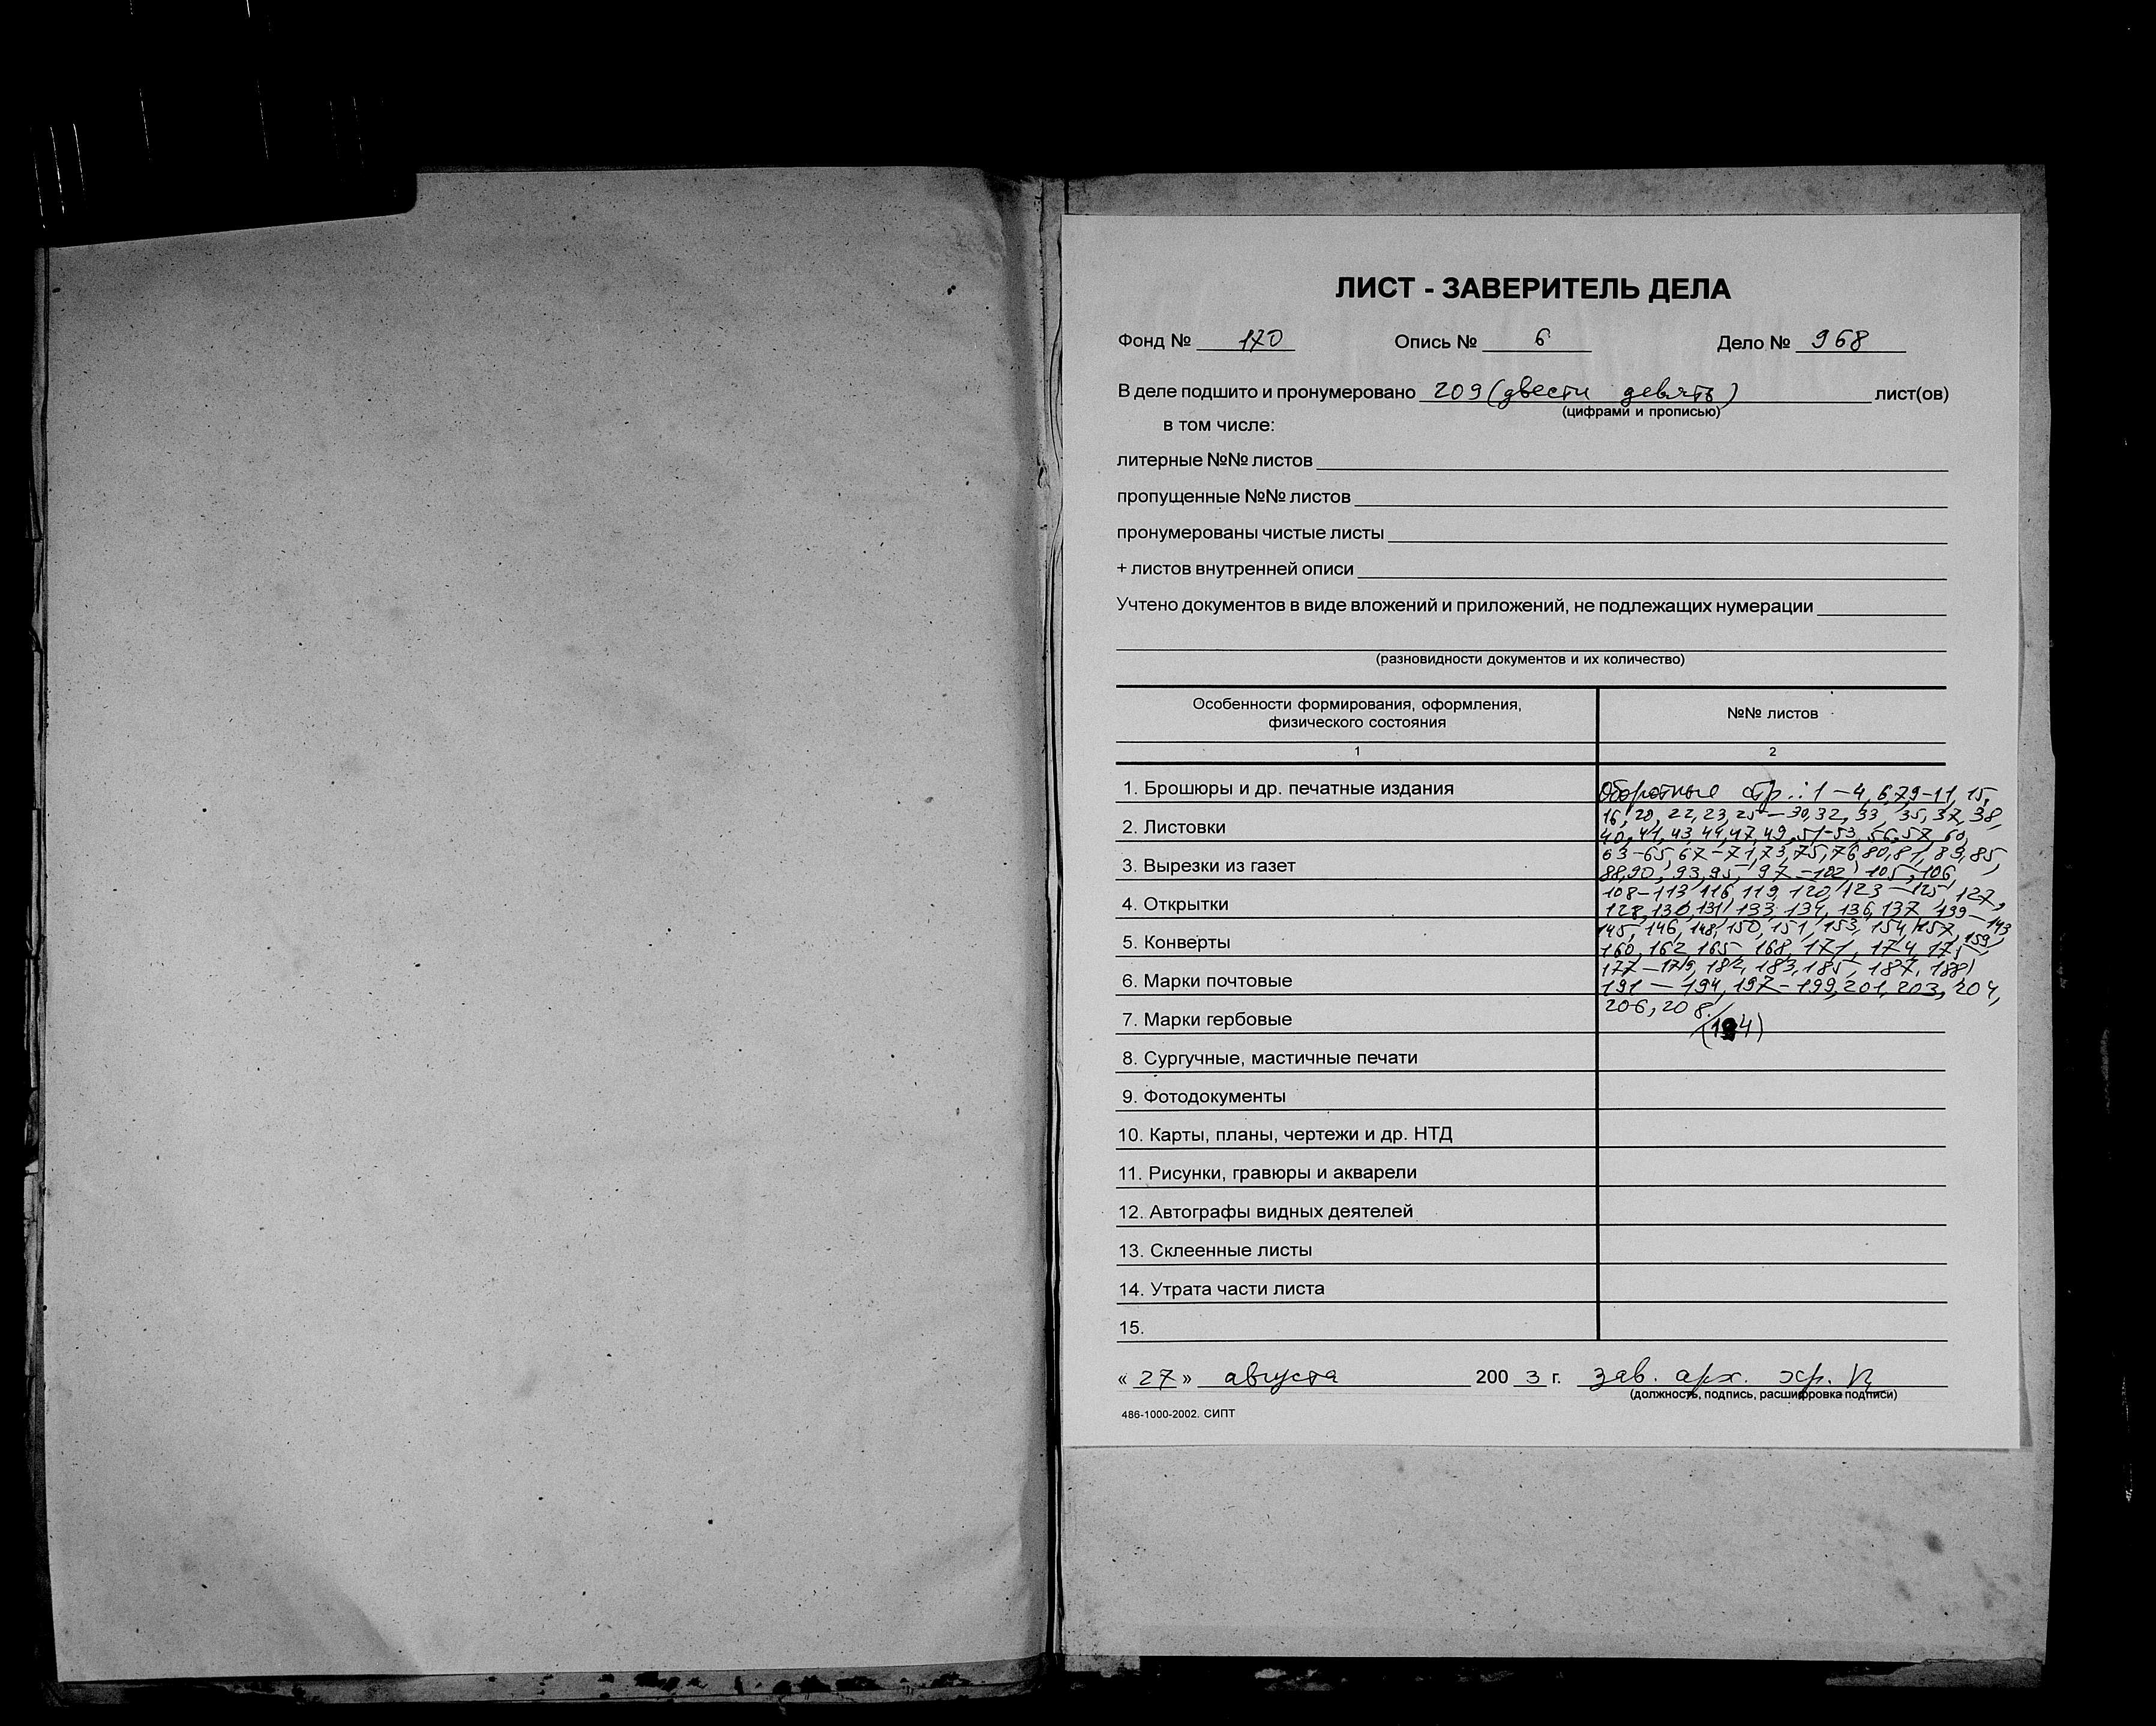 ЛИСТ - ЗАВЕРИТЕЛЬ ДЕЛА
Фонд № 170 Опись № 6 Дело № 968
В деле подшито и пронумеровано 209 (двести девять) лист(ов)
(цифрами и прописью)
в том числе:
литерные №№ листов
пропущенные №№ листов
пронумерованы чистые листы
+ листов внутренней описи
Учтено документов в виде вложений и приложений, не подлежащих нумерации
(разновидности документов и их количество)
Особенности формирования, оформления,
физического состояния
№№ листов
1 2
1. Брошюры и др. печатные издания
Оборотные стр.: 1-4, 6, 7, 9-11, 15,
16, 20, 22, 23, 25-30, 32, 33, 35, 37, 38,
2. Листовки
40, 41, 43, 44, 47, 49, 51-53, 56, 57, 60,
63-65, 67-71, 73, 75, 76, 80, 81, 83, 85,
3. Вырезки из газет
88, 90, 93, 95, 97-102, 105, 106
108-113, 116, 119, 120, 123-125, 127,
4. Открытки
128, 130, 131, 133, 134, 136, 137, 139-143
145, 146, 148, 150, 151, 153, 154, 157, 159,
5. Конверты
160, 162, 165, 168, 171, 174, 175,
177-179, 182, 183, 185, 187, 188,
6. Марки почтовые
191-194, 197-199, 201, 203, 204,
206, 208.
7. Марки гербовые
8. Сургучные, мастичные печати
9. Фотодокументы
10. Карты, планы, чертежи и др. НТД
11. Рисунки, гравюры и акварели
12. Автографы видных деятелей
13. Склеенные листы
14. Утрата части листа
15.
« 27 » августа 2003 г. зав. арх. хр.
(должность, подпись, расшифровка подписи)
486-1000-2002. СИПТ